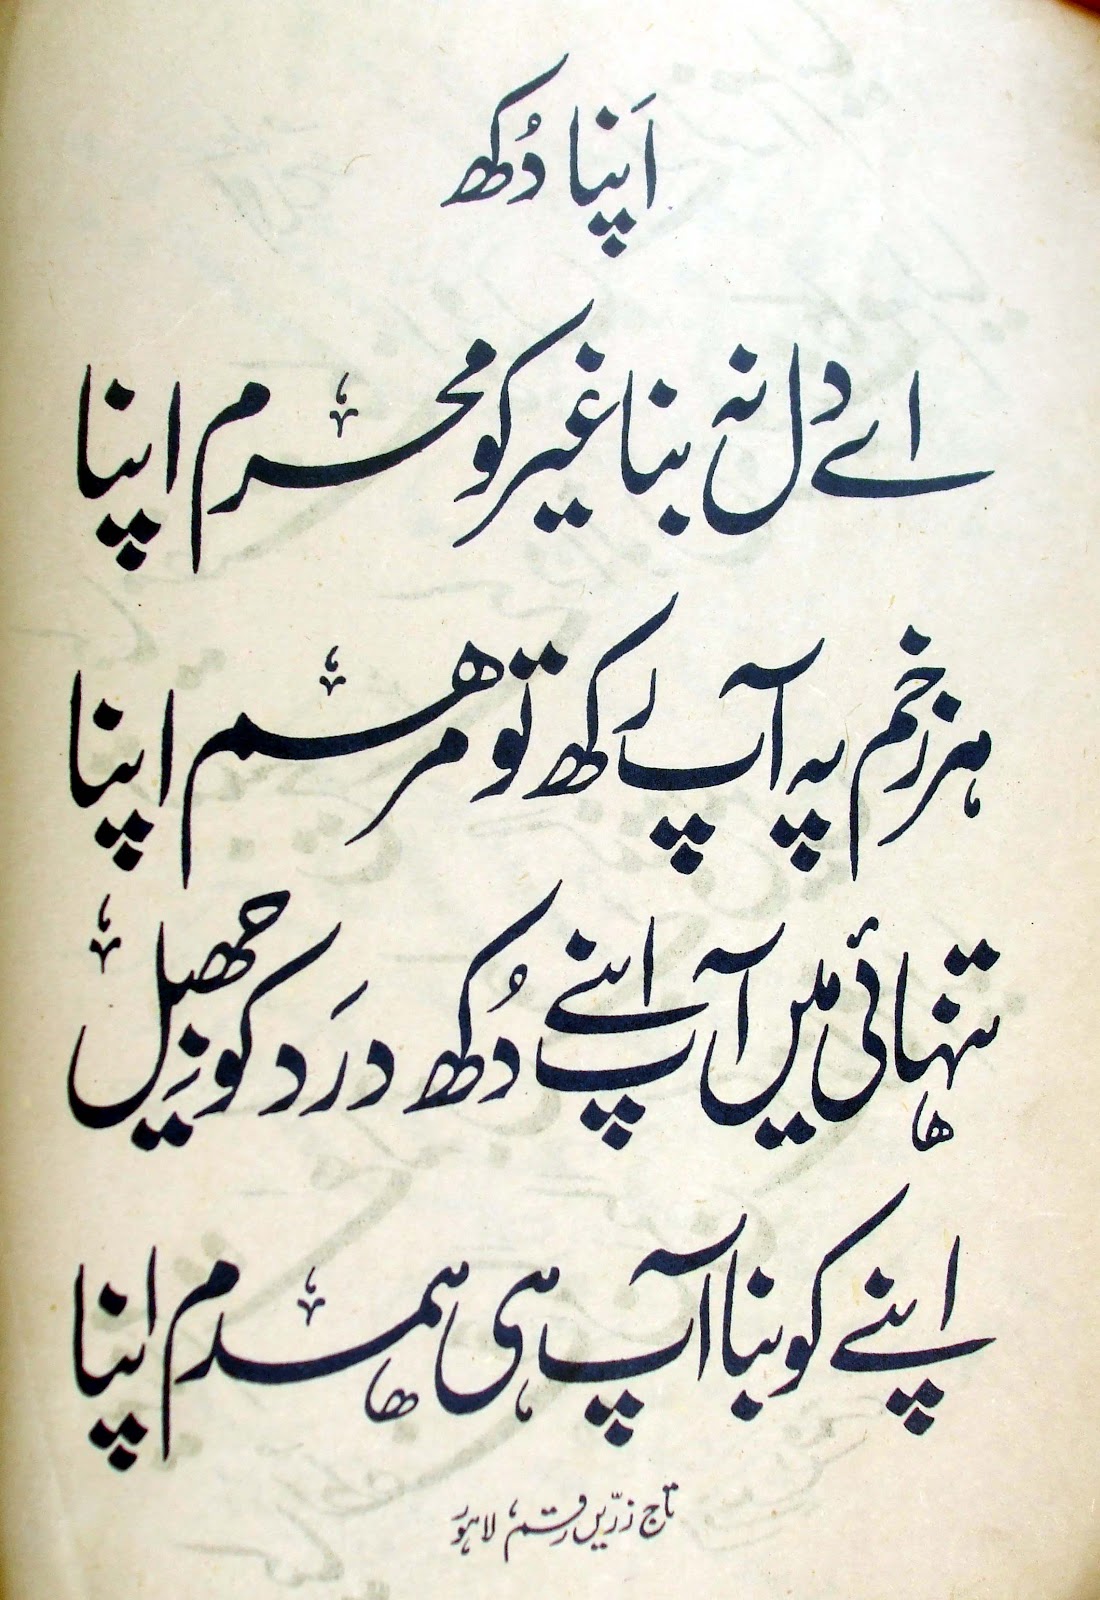 اَپنا دُکھ
اے دل نہ بنا غیر کو محرم اپنا
ہر زخم پہ آپ رکھ تو مرہم اپنا
تنہائی میں آپ اپنے دُکھ دَرد کو جھیل
اپنے کو بنا آپ ہی ہمدم اپنا
تاج زرّیں رقم، لاہور